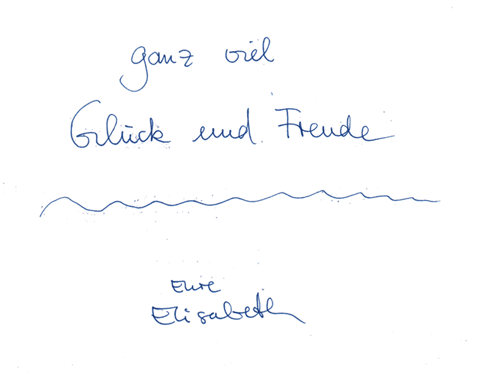 ganz viel
Glück und Freude
Eure
Elisabeth